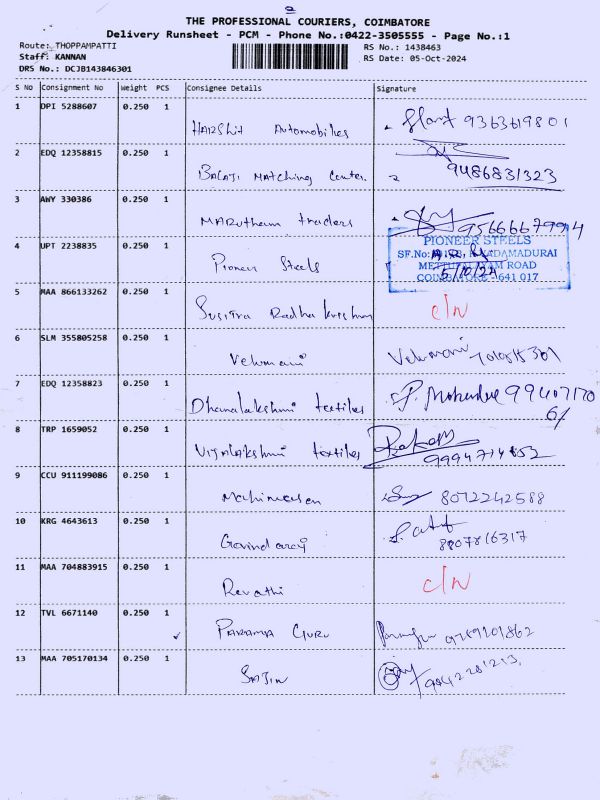 THE PROFESSIONAL COURIERS, COIMBATORE
Delivery Runsheet - PCM - Phone No.:0422-3505555 - Page No.:1
Route: THOPPAMPATTI
Staff: KANNAN
DRS No.: DCJB143846301
RS No.: 1438463
RS Date: 05-Oct-2024
S No Consignment No Weight PCS Consignee Details Signature
1 DPI 5288607 0.250 1 Harshit Automobiles 9363619801
2 EDQ 12358815 0.250 1 Balaji Matching Center. 9486831323
3 AWY 330386 0.250 1 Marutham traders 9566667994
4 UPT 2238835 0.250 1 Pioneer Steels
PIONEER STEELS
MADURAI
ROAD
5/10/24
COIMBATORE - 641 017
5 MAA 866133262 0.250 1 Susitra Radha krishnan c/n
6 SLM 355805258 0.250 1 Velumani Velumani
7 EDQ 12358823 0.250 1 Dhanalakshmi textiles
8 TRP 1659052 0.250 1 Vijalakshmi textiles
9 CCU 911199086 0.250 1 8072242588
10 KRG 4643613 0.250 1 Govindaraj 8807816317
11 MAA 704883915 0.250 1 Revathi c/n
12 TVL 6671140 0.250 1 Parama Guru
13 MAA 705170134 0.250 1 Sajin